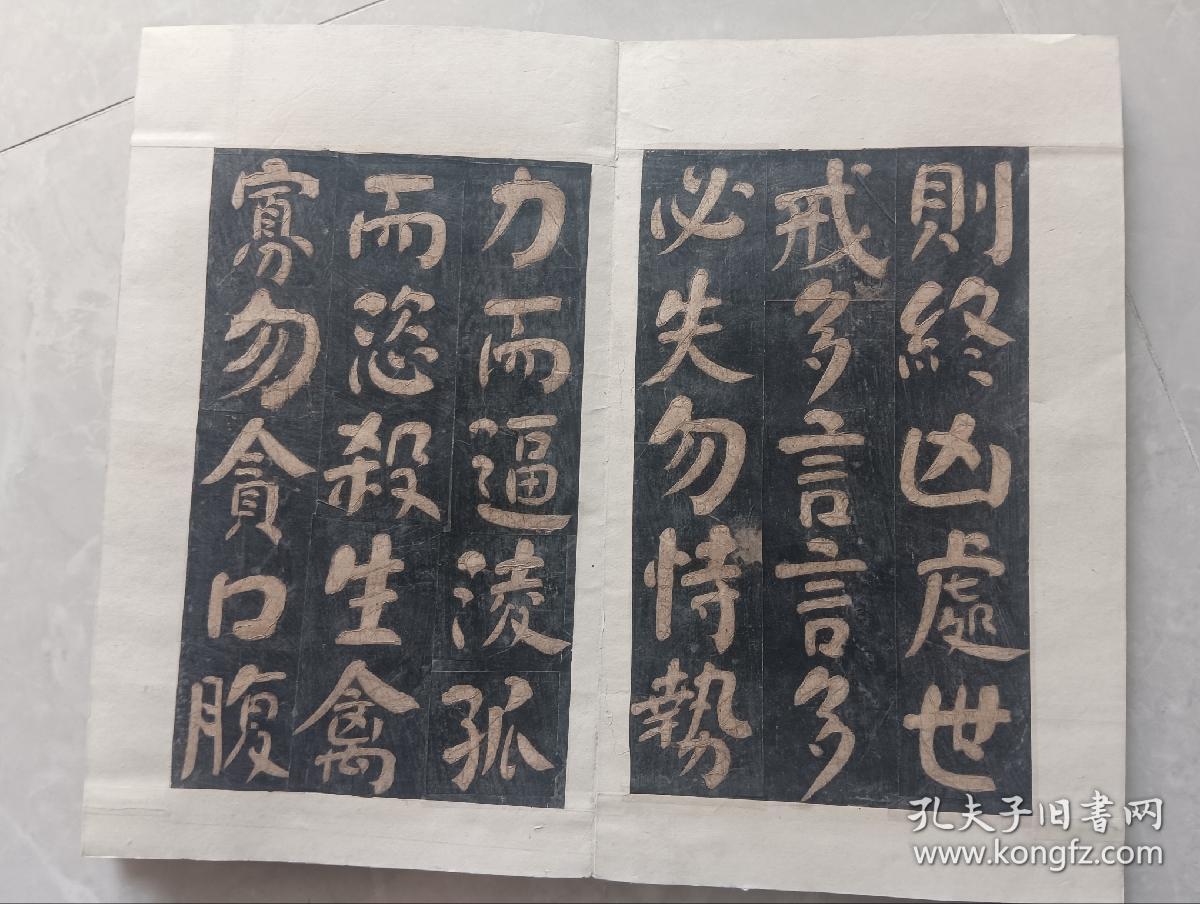 則終凶處世
戒多言言多
必失勿恃勢
力而逼淩孤
而恣殺生禽
寡勿貪口腹
孔夫子旧书网
www.kongfz.com